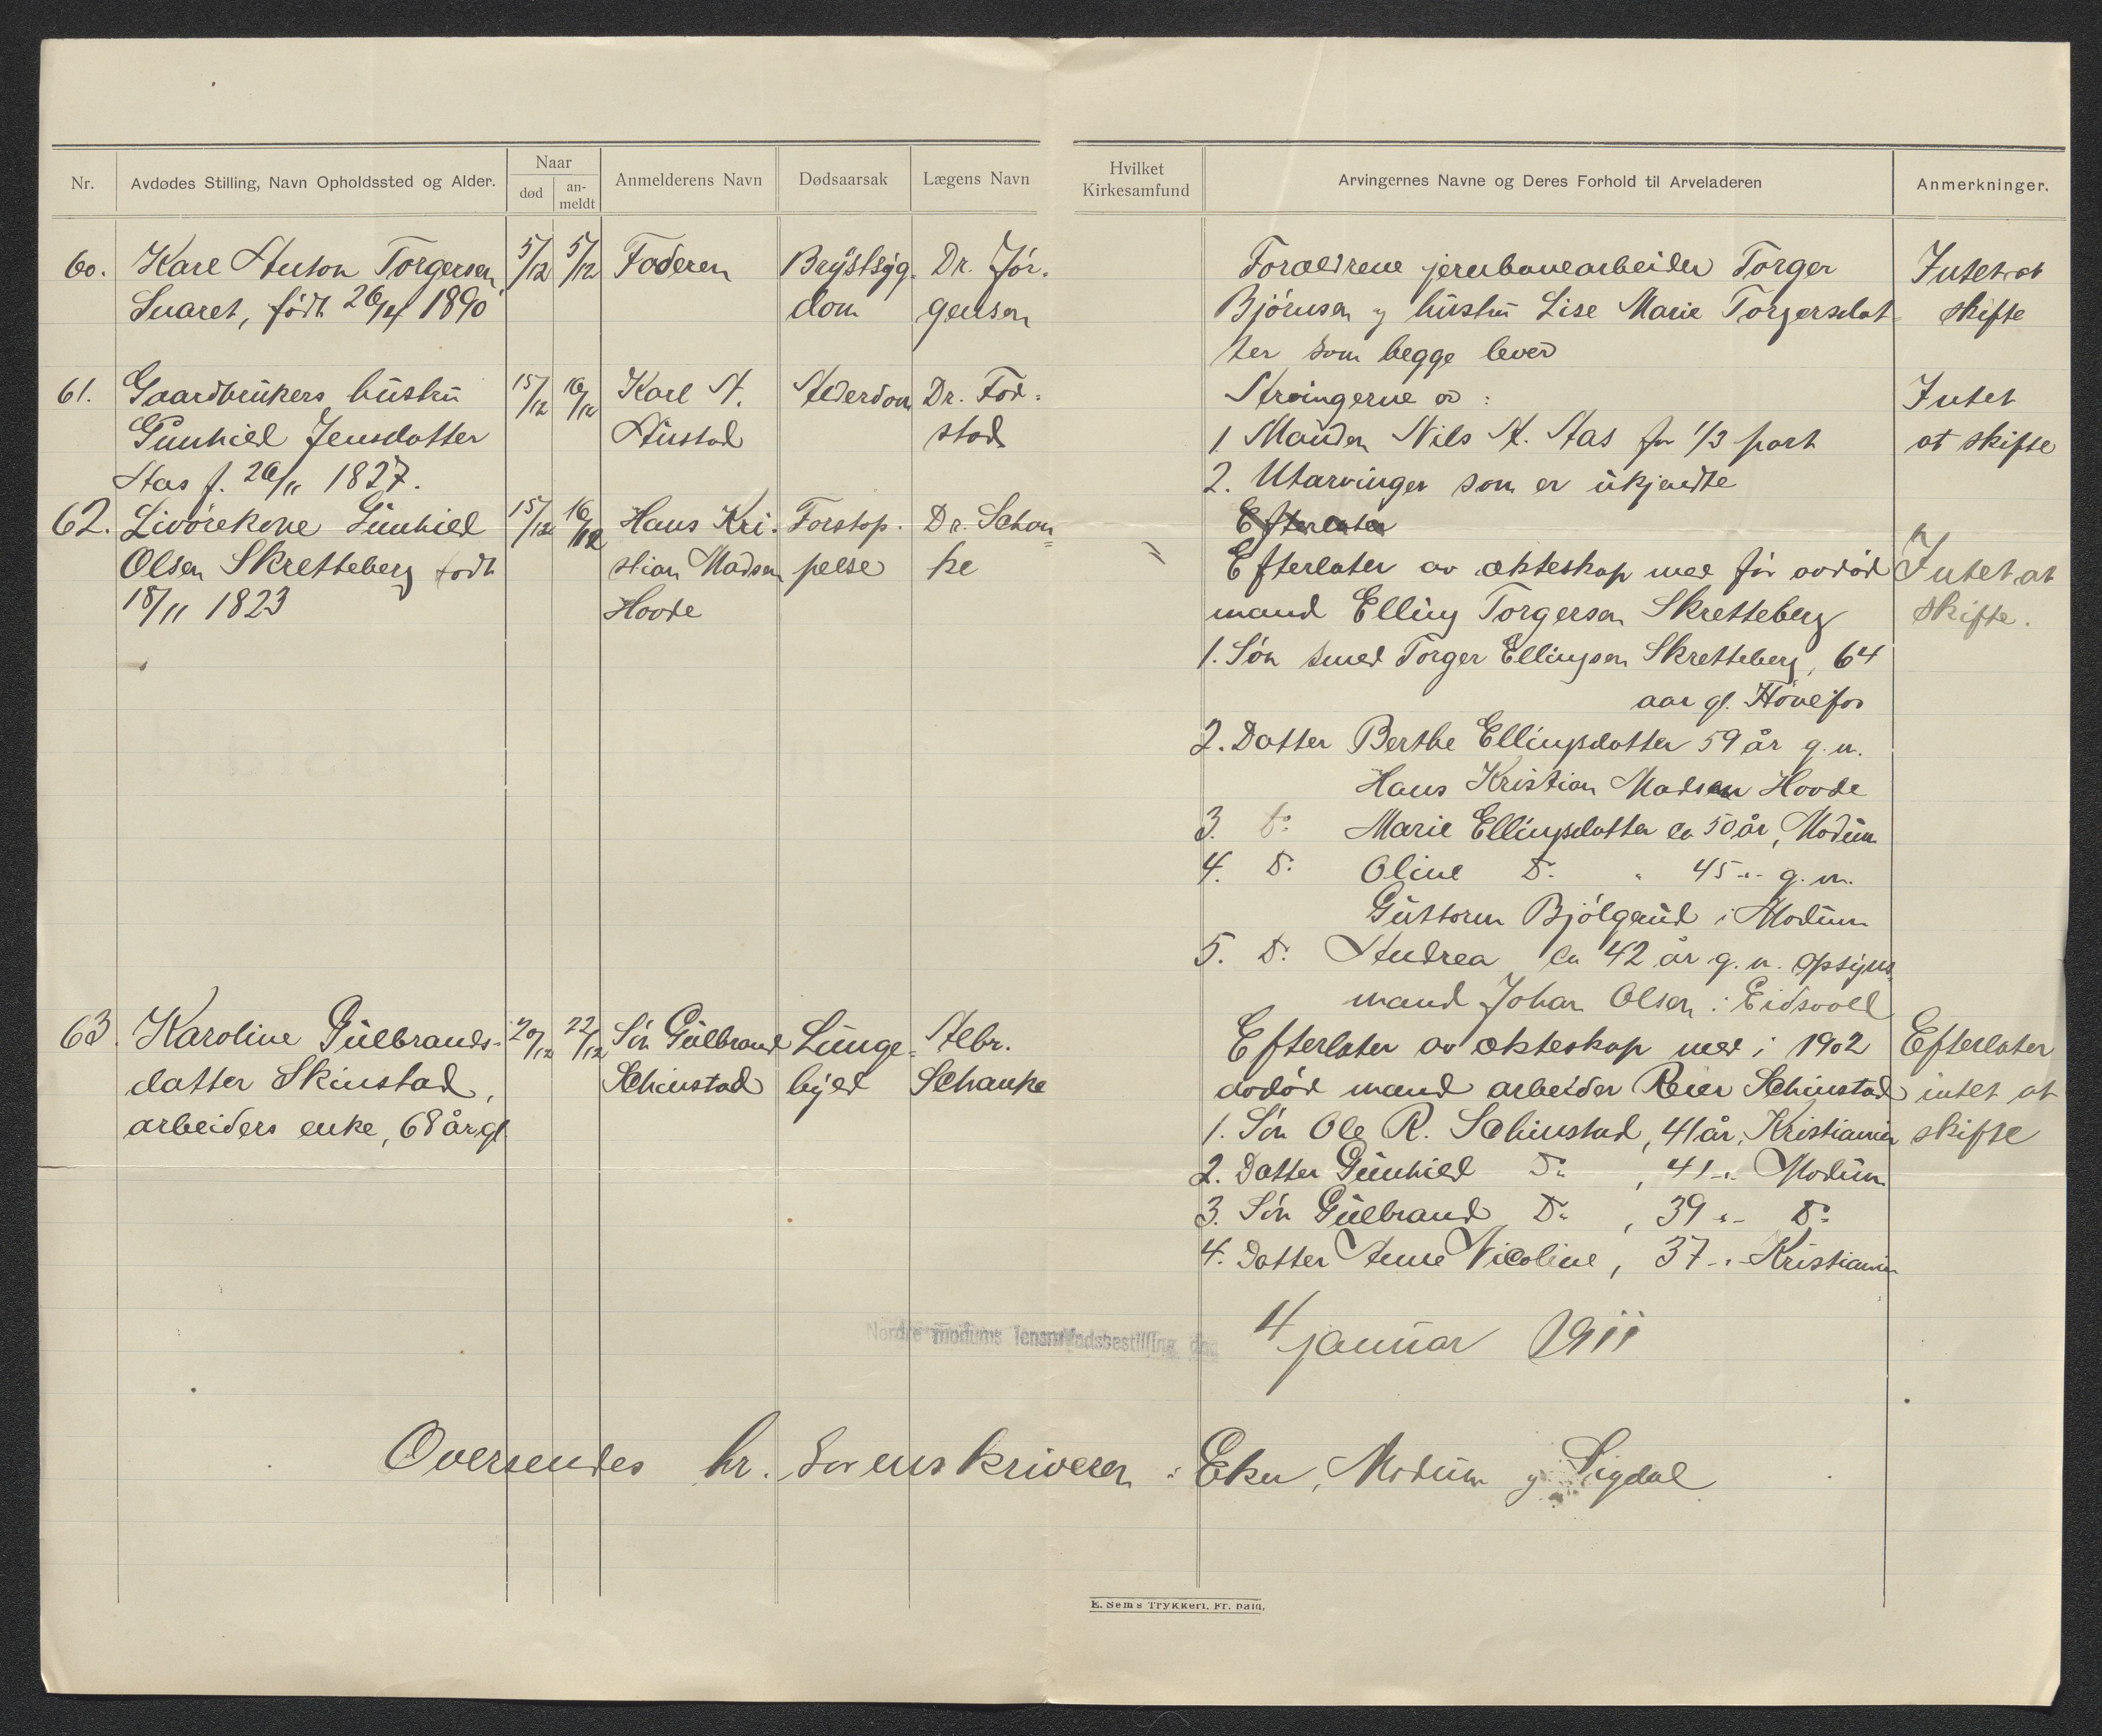 Nr.
Avdødes Stilling, Navn Opholdssted og Alder.
Naar
død
an-
meldt
Anmelderens Navn
Dødsaarsak
Lægens Navn
Hvilket
Kirkesamfund
Arvingernes Navne og Deres Forhold til Arveladeren
Anmerkninger.
60. Karl Anton Torgersen 5/12 5/12 Faderen Brystsyg- Dr. Jör-
Snaret, født 26/4 1890 dom gensen
Foraeldrene jernbanearbeider Torger
Björnsen og hustru Lise Marie Torgersdat-
ter som begge lever
Intet at
skifte
61. Gaardbrukers hustru 15/12 16/12 Karl A. Alderdom Dr. Fod-
Gunhild Jensdatter Austad stad
Aas f. 26/11 1827.
Arvingerne er:
1 Manden Nils A. Aas for 1/3 part
2. Utarvinger som er ukjendte
Intet
at skifte
62. Livörekone Gunhild 15/12 16/12 Hans Kri- Forstop- Dr. Schan-
Olsen Skretteberg født stian Madsen pelse ke
18/11 1823 Hovde
Efterlater
Efterlater av ekteskap med før avdød
mand Elling Torgersen Skretteberg
1. Sön smed Torger Ellingsen Skretteberg, 64
aar gl. Hönefos
2. Datter Berthe Ellingsdatter 59 år g.m.
Hans Kristian Madsen Hovde
3. Do Marie Ellingsdatter ca 50 år, Modum
4. Do Oline Do " 45 -"- g.m.
Guttorm Bjölgerud i Modum
5. Do Andrea ca 42 år g.m. opsyns-
mand Johan Olsen i Eidsvold
Intet at
skifte.
63. Karoline Gulbrands- 20/12 22/12 Sön Gulbrand Lunge- Albr.
datter Skinstad, Schinstad byld Schanke
arbeiders enke, 68 år gl.
Efterlater av ekteskap med i 1902
avdöd mand arbeider Reier Schinstad
1. Sön Ole R. Schinstad, 41 år, Kristiania
2. Datter Gunhild Do , 41 -"- Modum
3. Sön Gulbrand Do , 39 -"- Do
4. Datter Anne Nicoline, 37 -"- Kristiania
Efterlater
intet at
skifte
Nordre modums lensmandsbestilling den 4 januar 1911
Oversendes hr. Sorenskriveren i Eker, Modum og Sigdal
E. Sems Trykkeri. Fr. hald.